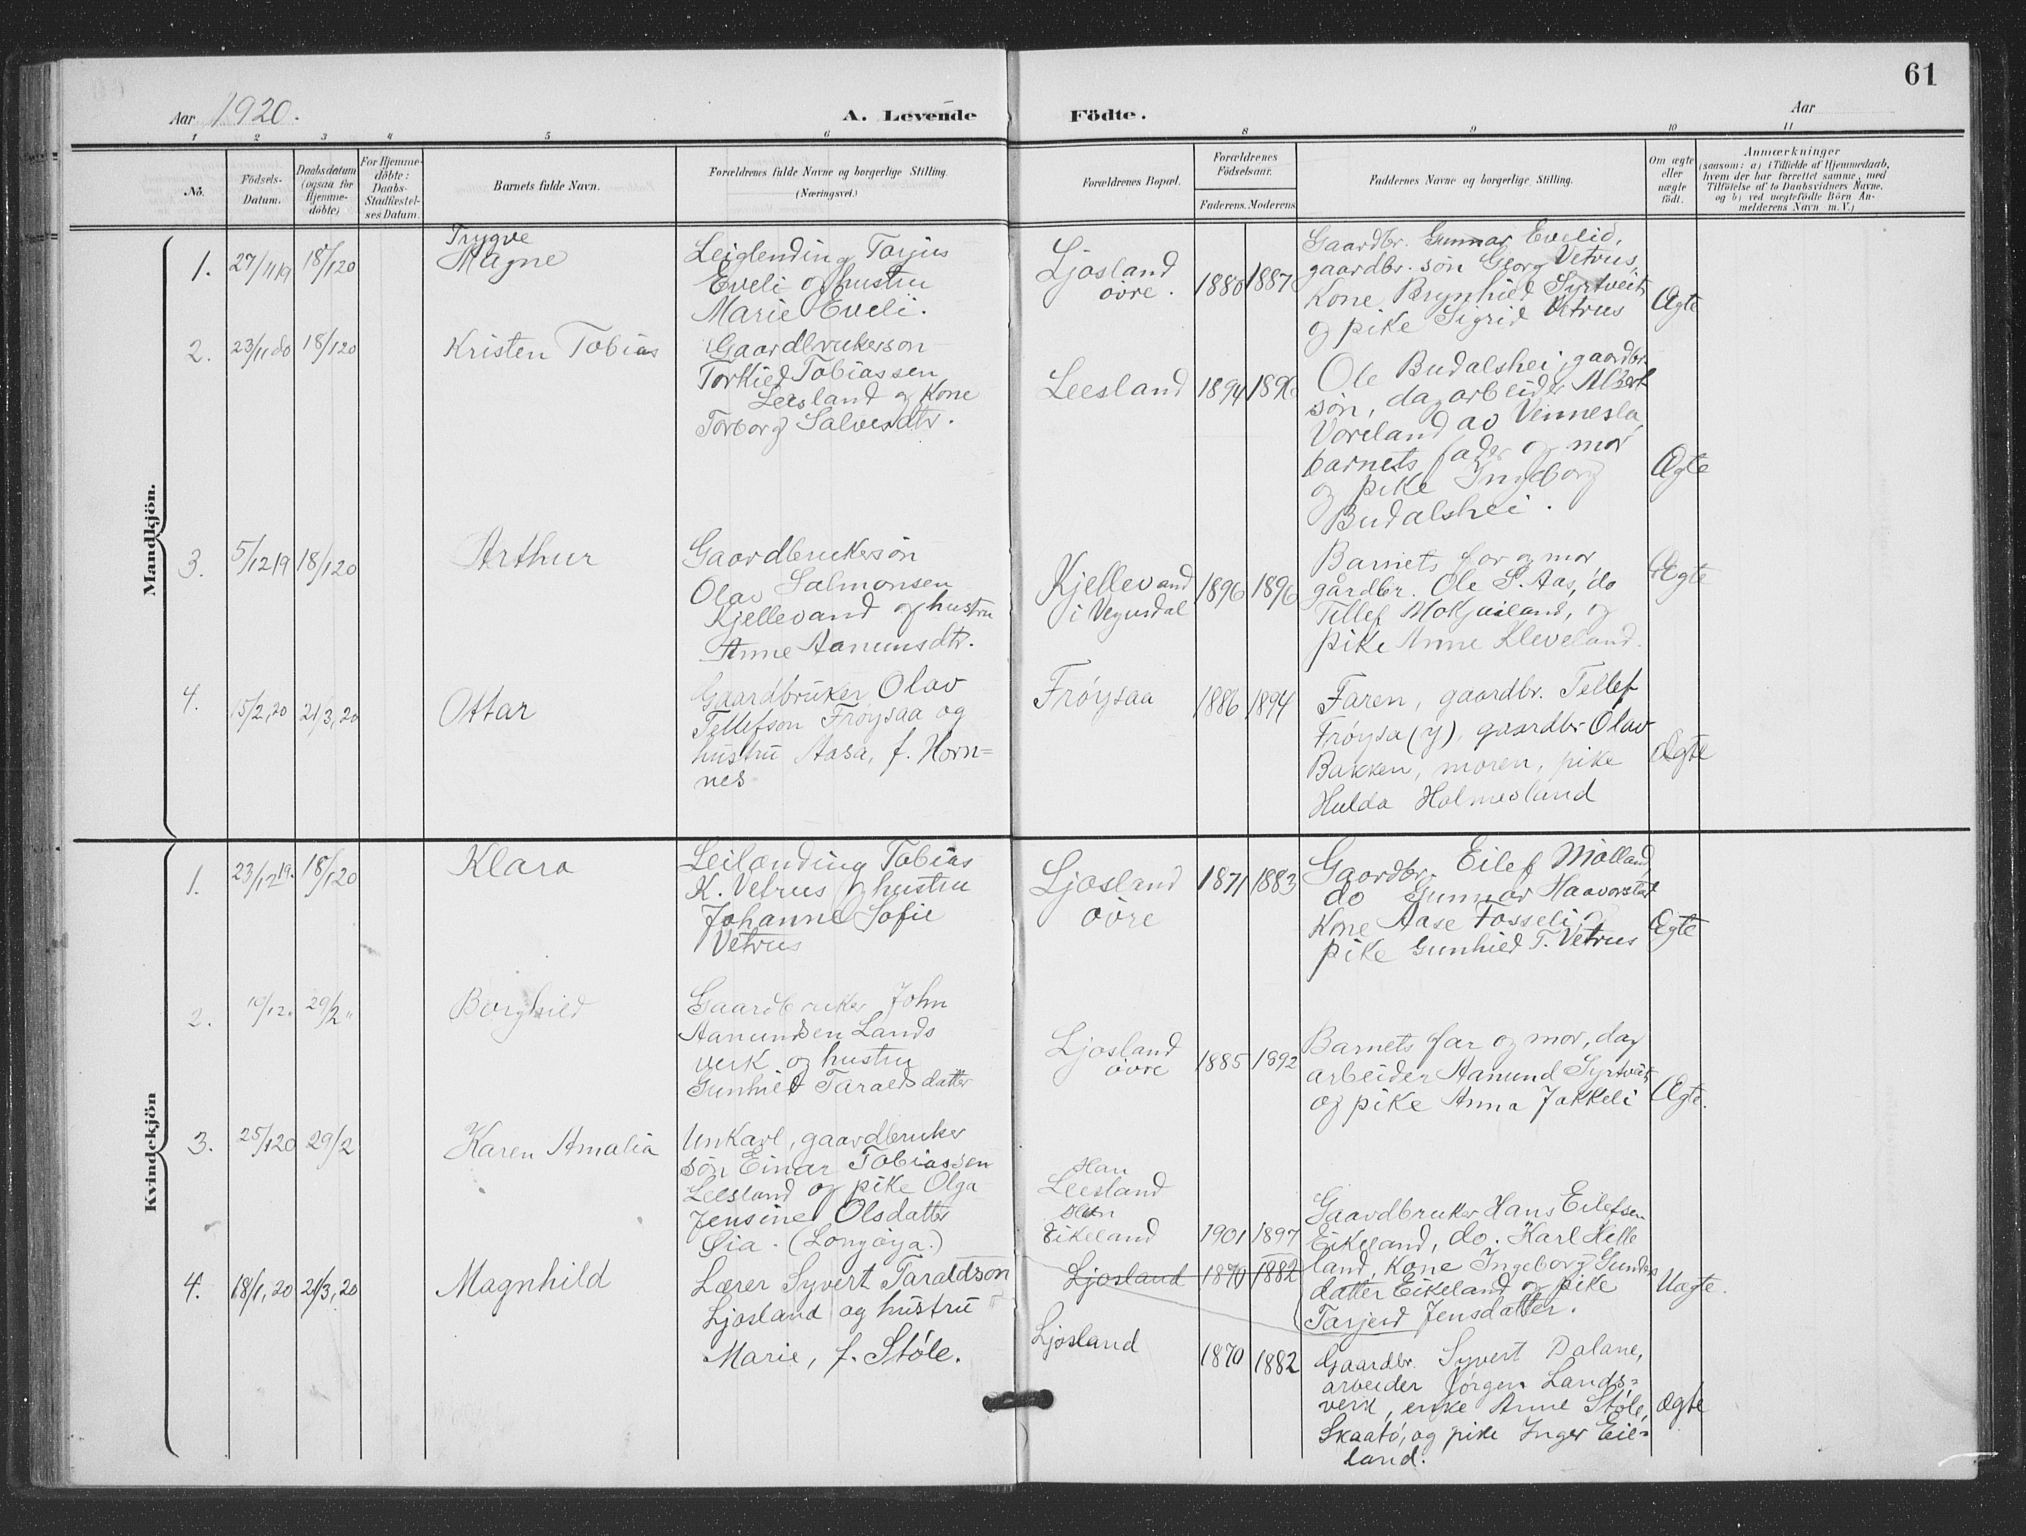 61
Aar 1920.
A. Levende
Födte.
Aar
1 2 3 4 5 6 8 9 10 11
No.
Födsels-
Datum.
Daabsdatum
(ogsaa for
Hjemme-
döbte)
For Hjemme-
döbte:
Daabs-
Stadfæstel-
ses Datum.
Barnets fulde Navn.
Forældrenes fulde Navne og borgerlige Stilling.
(Næringsvei.)
Forældrenes Bopæl.
Forældrenes
Födselsaar.
Faderens. Moderens.
Faddernes Navne og borgerlige Stilling.
Om ægte
eller
uægte
födt.
Anmærkninger
(saasom: a) i Tilfælde af Hjemmedaab,
hvem der har forrettet samme, med
Tilföielse af to Daabsvidners Navne.
og b) ved uægtefödte Börn An-
melderens Navn m. V.)
Mandkjön.
1. 27/11 19 18/1 20
Trygve
Magne
Leiglending Tarjus
Eveli og hustru
Marie Eveli.
Ljosland
övre.
1880 1887
Gaardbr. Gunnar Evelid,
gaardbr. sön Georg Vetrus,
Kone Brynhild Syrtveit
og pike Sigrid Vetrus
Ægte
2. 23/11 do 18/1 20
Kristen Tobias
Gaardbrukersön
Torkied Tobiassen
Leesland og Kone
Torborg Salvesdtr.
Leesland
1894 1896
Ole Budalshei, gaardbr.
sön, dagarbeider Albert
Voreland av Vennesla,
barnets fader og mor
og pike Ingeborg
Budalshei.
Ægte
3. 5/12 19 18/1 20
Arthur
Gaardbrukersön
Olav Salmonsen
Kjellevand og hustru
Anne Aanunsdtr.
Kjellevand
i Vegusdal
1896 1896
Barnets far og mor
gårdbr. Ole S. Aas, do
Tellef Mokjaisland, og
pike Anne Kleveland.
Ægte
4. 15/2, 20 21/3, 20
Ottar
Gaardbruker Olav
Tellefson Fröysaa og
hustru Aasa, f. Horn=
nes
Fröysaa
1886 1894
Faren, gaardbr. Tellef
Fröysa (y), gaardbr Olav
Bakken, moren, pike
Hulda Holmesland
Ægte
Kvindekjön
1. 23/12 19. 18/1 20
Klara
Leilending Tobias
K. Vetrus og hustru
Johanne Sofie
Vetrus
Ljosland
övre
1871 1883
Gaardbr. Eilef Mölland,
do Gunnar Haavorstat
Kone Aase Fosseli og
pike Gunhild T. Vetrus
Ægte
2. 19/12. 29/2 "
Borghild
Gaardbruker John
Aanundsen Lands
verk og hustru
Gunhild Taraldsdatter
Ljosland
övre
1885 1892
Barnets far og mor, dag
arbeider Aanund Syrtveit
og pike Anna Jakkeli
Ægte.
3. 25/1 20 29/2
Karen Amalia
Unkarl, gaardbruker
sön Einar Tobiassen
Leesland og pike Olga
Jensine Olsdatter
Öia. (Longöya.)
Han
Leesland
Hun
Eikeland
1901 1897
Gaardbruker Hans Eilefsen
Eikeland, do. Karl Helle
land, Kone Ingeborg Gunders
datter Eikeland og pike
Tarjerd Jensdatter.
Uægte.
4. 18/1, 20 21/3, 20
Magnhild
Lærer Syvert Taraldson
Ljosland og hustru
Marie, f. Stöle.
Ljosland 1870 1882
Ljosland
1870 1882
Gaardbr. Syvert Dalane,
arbeider Jörgen Lands=
verk, enke Anne Stöle,
Skaatö, og pike Inger Eie=
land.
Ægte